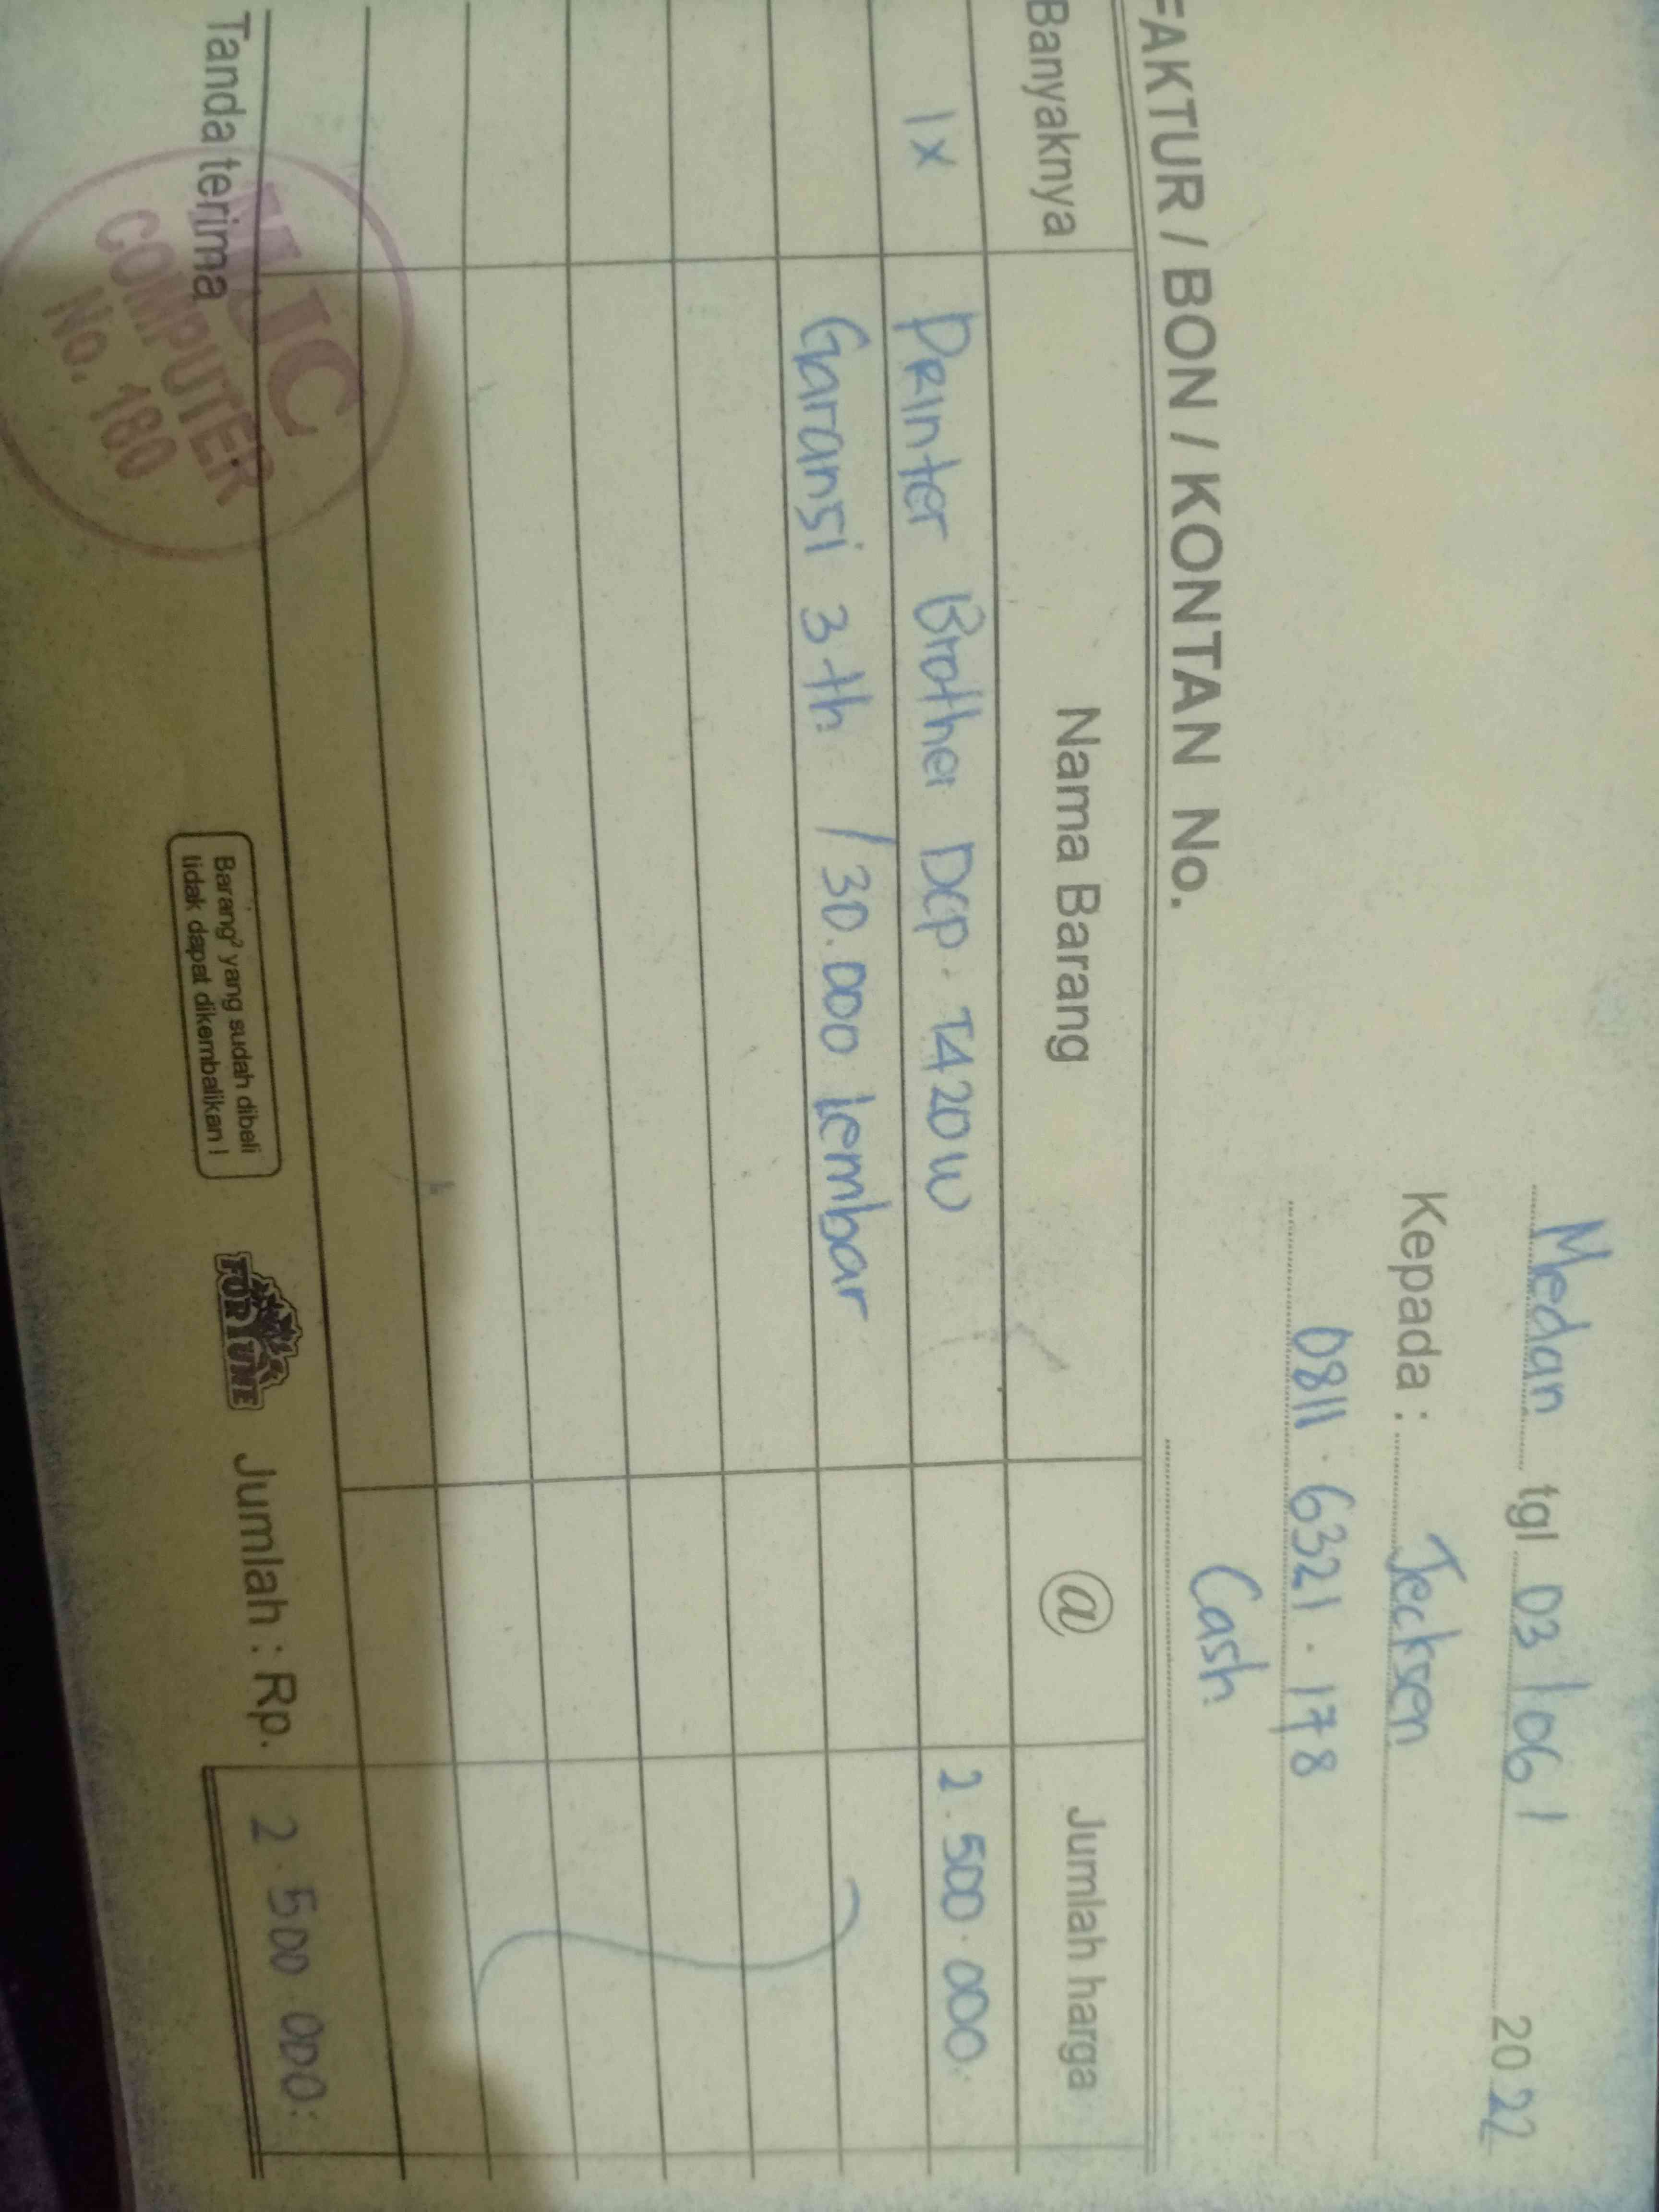 Medan tgl 03/06/ 2022
Kepada : Jecksen
0811.6321.178
Cash
FAKTUR / BON / KONTAN No.
Banyaknya Nama Barang @ Jumlah harga
1x Printer Brother DCP.T420W 2.500.000.
Garansi 3th /30.000 lembar
Tanda terima
COMPUTER
No. 180
Barang² yang sudah dibeli
tidak dapat dikembalikan !
FORTUNE
Jumlah : Rp. 2.500.000: